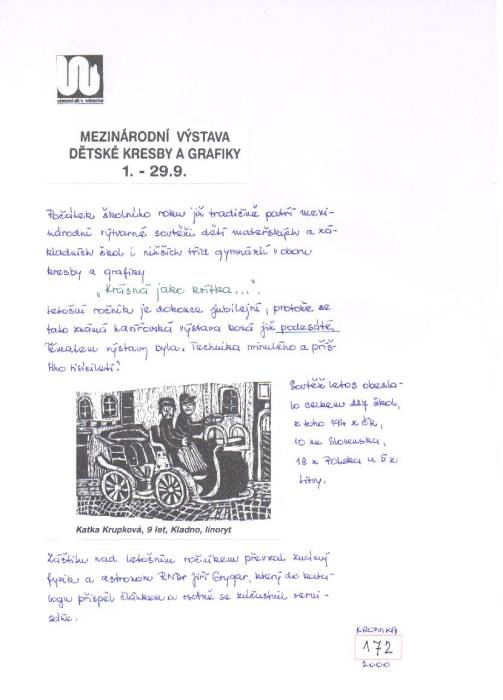 MEZINÁRODNÍ VÝSTAVA
DĚTSKÉ KRESBY A GRAFIKY
1. - 29.9.
Počátek školního roku již tradičně patří mezi-
národní výtvarné soutěži dětí mateřských a zá-
kladních škol i nižších tříd gymnázií v oboru
kresby a grafiky
"Krásná jako kvítka...".
Letošní ročník je dokonce jubilejní, protože se
tato známá výstava koná již podesáté.
Tématem výstavy byla "Technika minulého a příš-
tího tisíciletí".
Soutěž letos obesla-
lo celkem 227 škol,
z toho 194 z ČR,
10 ze Slovenska,
18 z Polska a 5 z
Litvy.
Katka Krupková, 9 let, Kladno, linoryt
Záštitu nad letošním ročníkem převzal známý
fyzik a astronom RNDr Jiří Grygar, který do kata-
logu přispěl článkem a osobně se zúčastnil verni-
sáže.
KRONIKA
172
2000